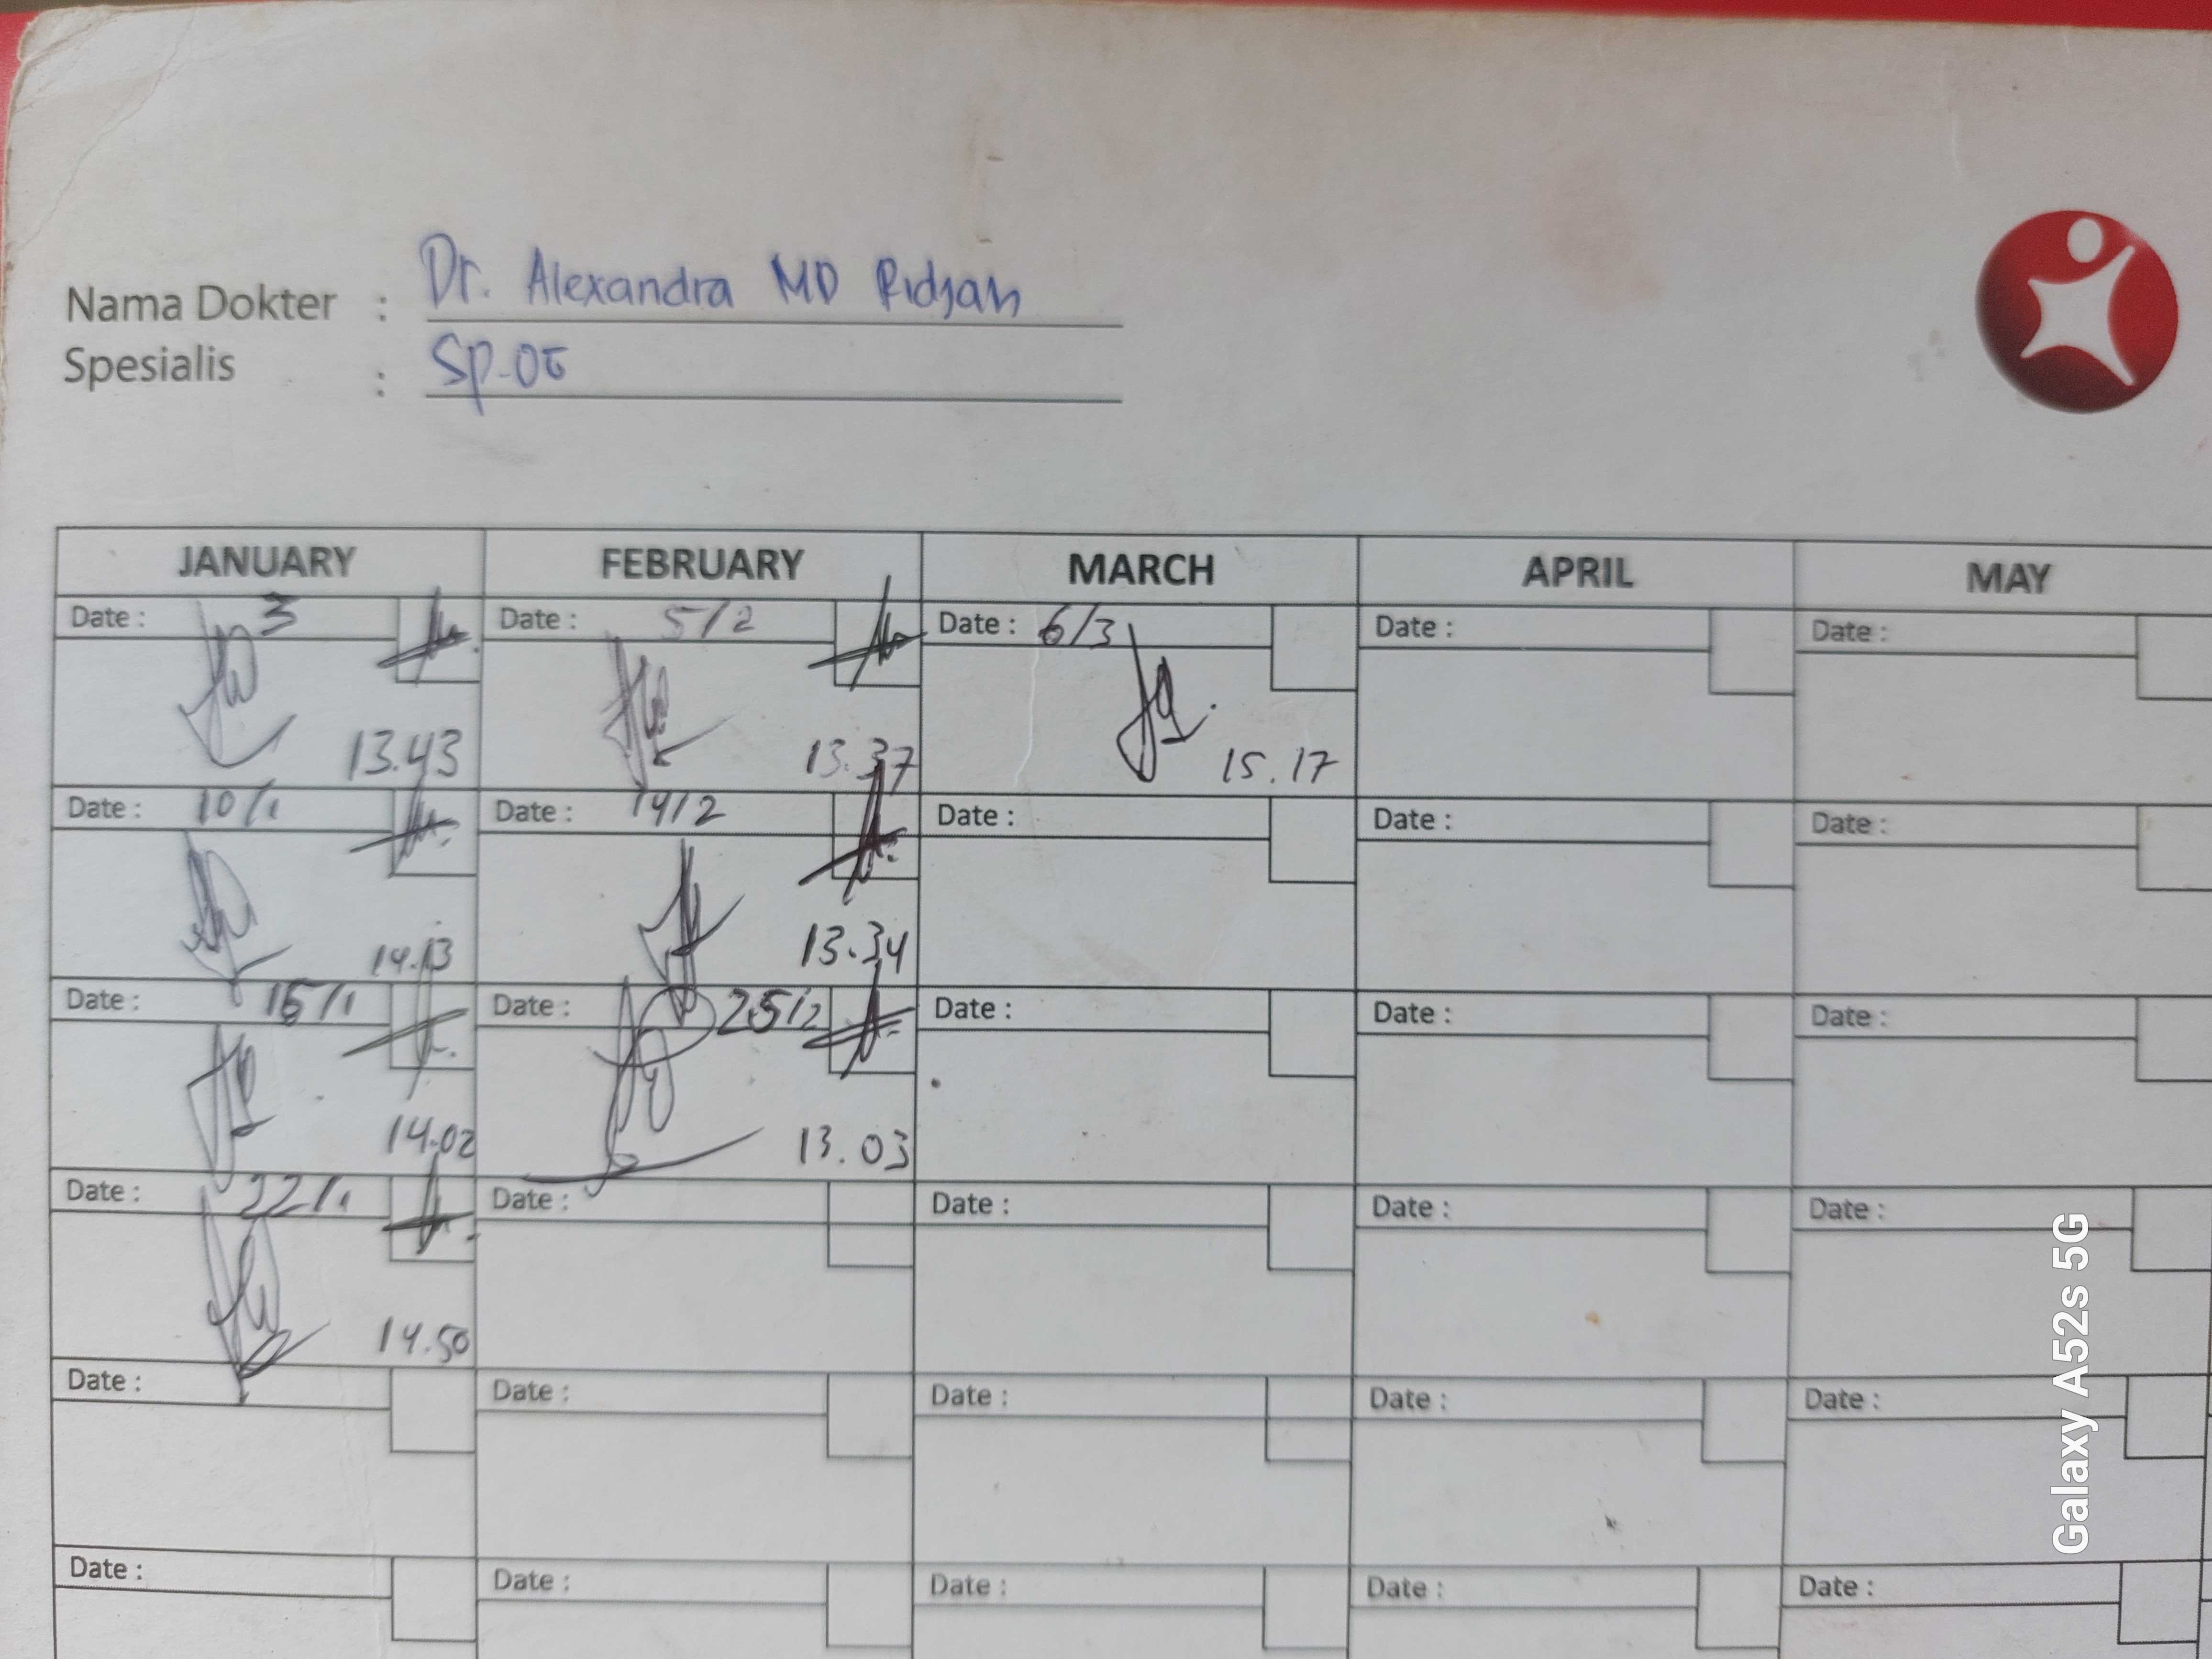 Nama Dokter : Dr. Alexandra MD Ridjah
Spesialis : Sp-OG
JANUARY FEBRUARY MARCH APRIL MAY
Date : 3 Date : 5/2 Date : 6/3 Date : Date :
13.43 13.37 15.17
Date : 10/1 Date : 14/2 Date : Date : Date :
14.13 13.34
Date : 15/1 Date : 25/2 Date : Date : Date :
14.02 13.03
Date : 22/1 Date : Date : Date : Date :
14.50
Date : Date : Date : Date : Date :
Date : Date : Date : Date : Date :
Galaxy A52s 5G